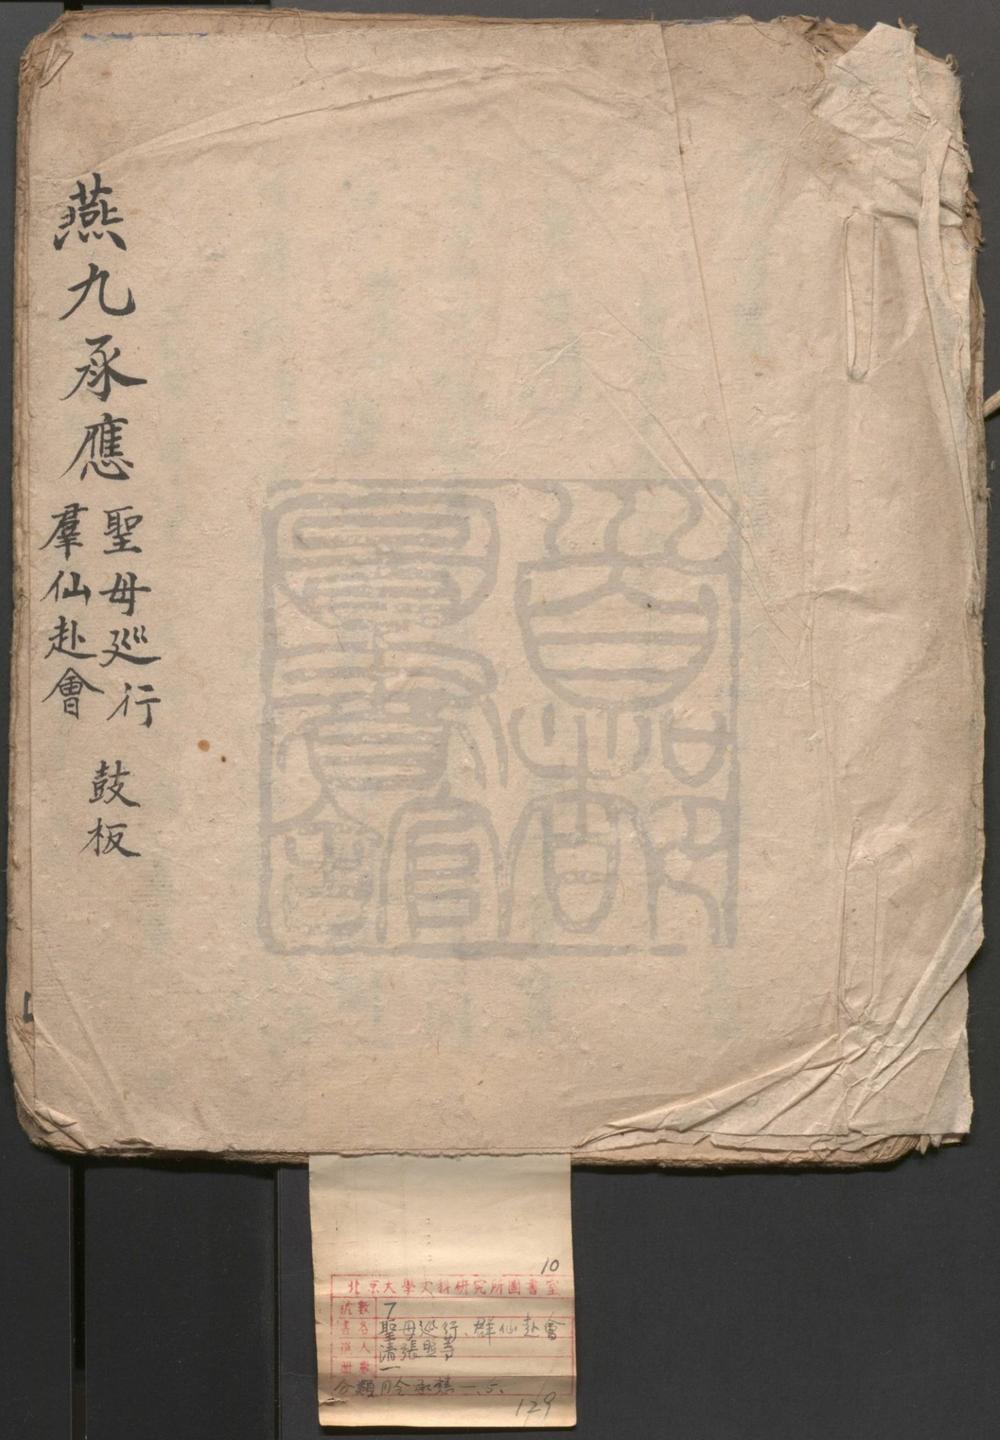 燕九承應
聖母巡行
羣仙赴會
鼓板
首都
圖書館
10
北京大學文科研究所圖書室
號數 7
書名 聖母巡行、群仙赴會
撰人 清張照等
冊數 一
分類 月令承應一.5.
129